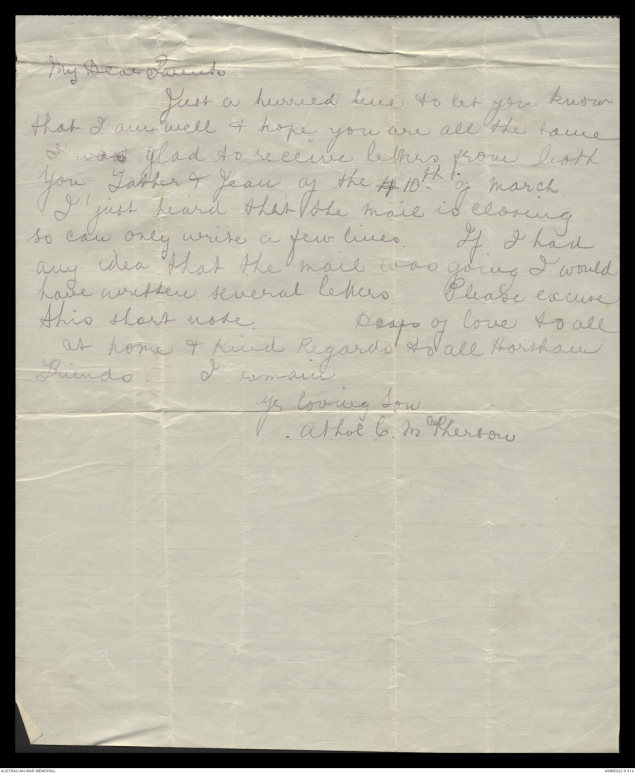 My Dear Parents
Just a hurried line to let you know
that I am well & hope you are all the same
I was glad to receive letters from both
you Father & Jean of the 10th of march
I just heard that the mail is closing
so can only write a few lines. If I had
any idea that the mail was going I would
have written several letters Please excuse
this short note. Heaps of love to all
at home & kind Regards to all Horsham
Friends. I remain
yr loving Son
Athol C. McPherson
AUSTRALIAN WAR MEMORIAL